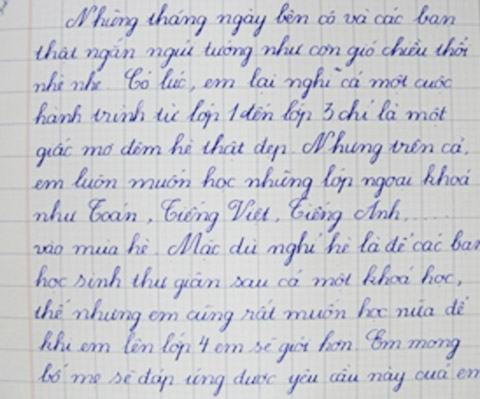 Những tháng ngày bên cô và các bạn
thật ngắn ngủi tưởng như cơn gió chiều thổi
nhè nhẹ. Có lúc, em lại nghĩ cả một cuộc
hành trình từ lớp 1 đến lớp 3 chỉ là một
giấc mơ đêm hè thật đẹp. Nhưng trên cả,
em luôn muốn học những lớp ngoại khoá
như Toán, Tiếng Việt, Tiếng Anh,.....
vào mùa hè. Mặc dù nghỉ hè là để các bạn
học sinh thư giãn sau cả một khoá học,
thế nhưng em cũng rất muốn học nữa để
khi em lên lớp 4 em sẽ giỏi hơn. Em mong
bố mẹ sẽ đáp ứng được yêu cầu này của em